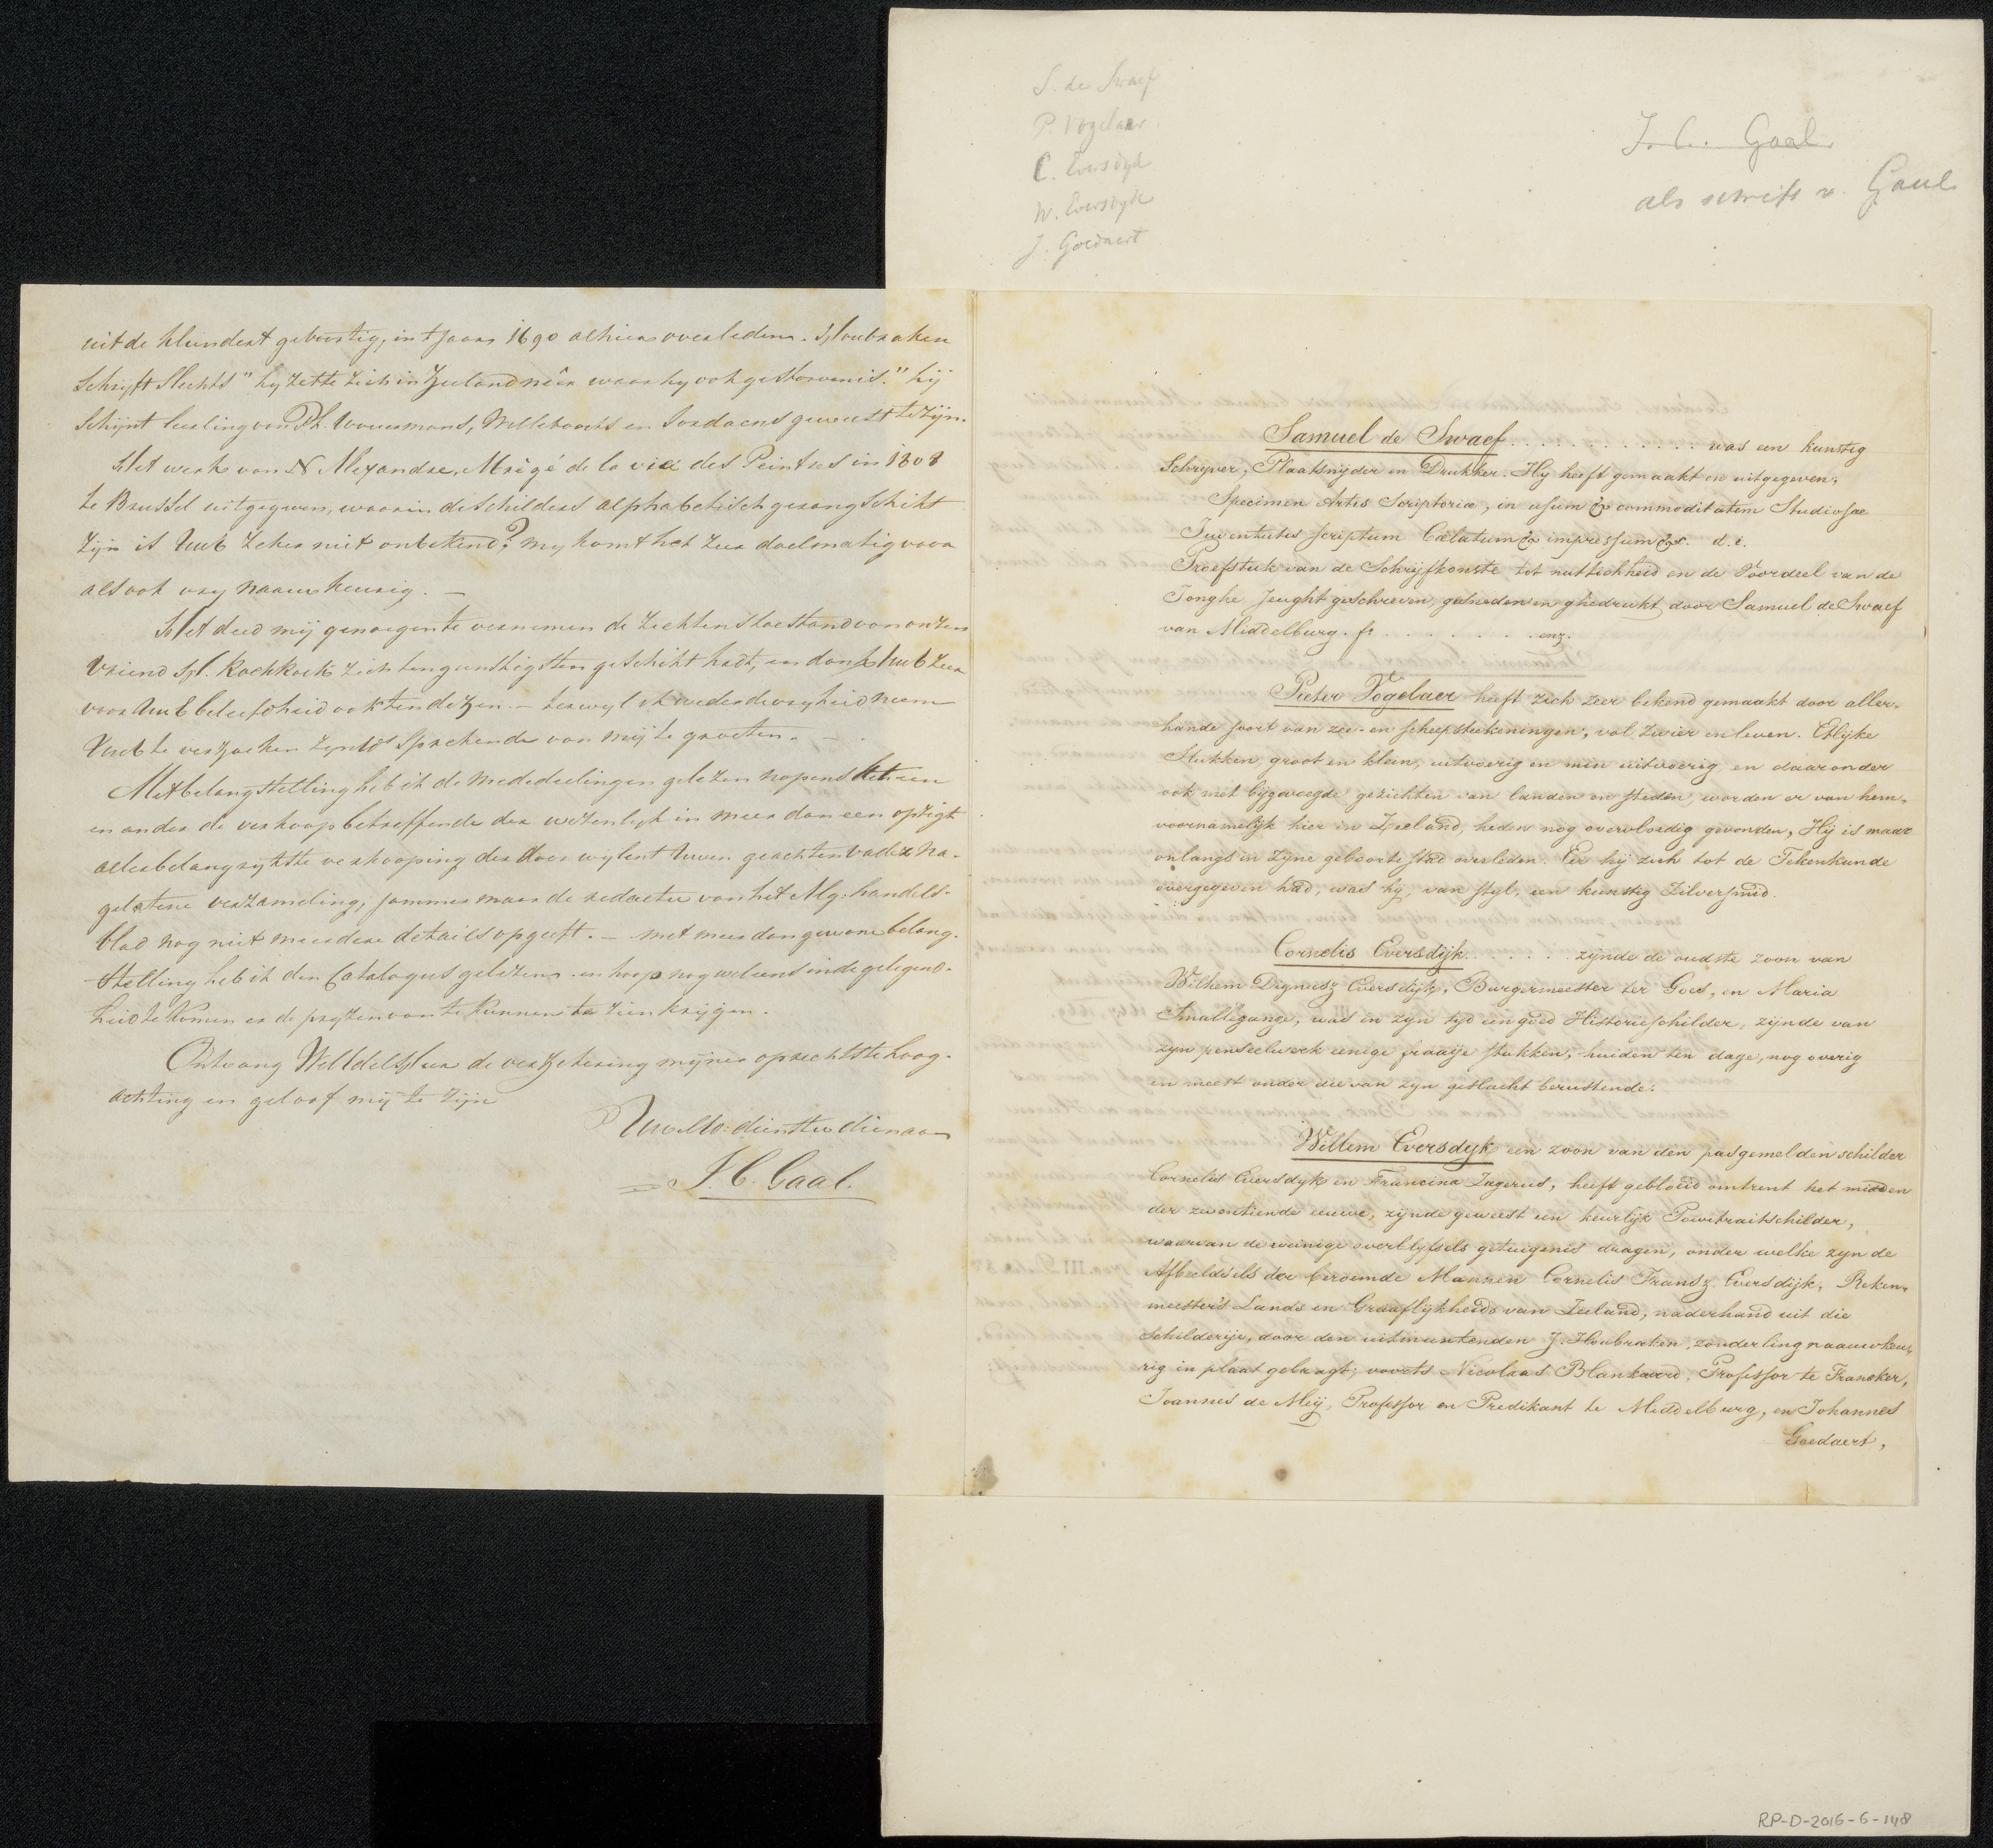 S. de Swaef
P. Vogelaer
C. Eversdyk
W. Eversdyk
J. Goedaert
J. C. Gaal
als schrift v. Gaal
uit de Klundert geboortig, in 't jaar 1690 alhier overleden. Houbraken
Schryft Slechts "hy Zette Zich in Zeeland nêer waar hy ook gestorven is." hij
Schijnt leerling van Ph. Wouwermans, Willeboorts en Jordaens geweest te zijn.
Het werk van Alexandre, Abrégé de la vie des Peintres in 1808
te Brussel uitgegeven, waarin de Schilders alphabetisch gerangschikt
Zijn is UwE Zeker niet onbekend? my komt het Zeer doelmatig voor
als ook vry naauwkeurig. —
Het deed mij genoegen te vernemen de Ziektens toestand van onzen
Vriend H. Koekkoek Zich ten gunstigsten geschikt hadt, en dank UwE Zeer
voor UwE beleefdheid ook ten dezen. — terwyl ik weder de vryheid neem
UwE te verzoeken Zyn Sprekende van mij te groeten. —
Met belangstelling heb ik de mededeelingen gelezen nopens het een
en ander de verkoop betreffende der wezenlyk in meer dan een opzigt
allerbelangrykste verkooping der door wylent Uwen geachten Vader na-
gelatene verzameling, jammer maar de redactie van het Alg: handels-
blad nog niet meerdere details opgeeft. — met meer dan gewone belang-
stelling heb ik den Catalogus gelezen en hoop nog wel eens in de gelegend-
heid te Komen er de pryzen van te kunnen te zien krijgen.
Ontvang WelEdele Heer de verzekering mijner oprechtste hoog-
achting en geloof mij te Zijn
UwEdo: dienstw dienaar
J. C. Gaal.
Samuel de Swaef . . . . . . . . . . . . was een kunstig
Schryver, Plaatsnyder en Drukker. Hy heeft gemaakt en uitgegeven;
Specimen Artis Scriptoriæ, in usum & commoditatem Studiosae
Juventutis scriptum Cælatum & impressum &c. d. i.
Proefstuk van de Schrijfkonste tot nuttichheid en de Voordeel van de
Jonghe Jeught geschreven, gesneden en ghedrukt door Samuel de Swaef
van Middelburg. fr . . . . . . . enz.
Pieter Vogelaer heeft zich zeer bekend gemaakt door aller-
hande soort van zee- en scheepstekeningen, vol zwier en leven. Etlijke
Stukken, groot en klein, uitvoerig en min uitvoerig, en daaronder
ook met bijgevoegde gezichten van landen en steden, worden er van hem,
voornamelijk hier in Zeeland, heden nog overvloedig gevonden, Hij is maar
onlangs in zijne geboortestad overleden. Eer hij zich tot de Tekenkunde
overgegeven had, was hij, van styl, een kunstig Zilversmid.
Cornelis Eversdijk . . . . . . zijnde de oudste zoon van
Wilhem Dignusz Eversdijk, Burgermeester ter Goes, en Maria
Smallegange, was in zyn tyd een goed Historieschilder, zijnde van
zyn penseelwerk eenige fraaije stukken, huiden ten dage, nog overig
en meest onder die van zyn geslacht berustende.
Willem Eversdyk een zoon van den pasgemelden schilder
Cornelis Eversdyk en Francina Zagerus, heeft gebloeid omtrent het midden
der zeventiende eeuwe, zijnde geweest een keurlijk Pourtraitschilder,
waarvan de weinige overblyfsels getuigenis dragen, onder welke zyn de
Afbeeldsels der beroemde Mannen Cornelis Fransz. Eversdijk, Reken-
meester's Lands en Graaflykheids van Zeeland, naderhand uit die
Schilderije, door den uitmuntenden J. Houbraken, zonderling naauwkeu-
rig in plaat gebragt; voorts Nicolaas Blankaard, Professor te Franeker,
Joannes de Meij, Professor en Predikant te Middelburg, en Johannes
Goedaert,
RP-D-2016-6-148